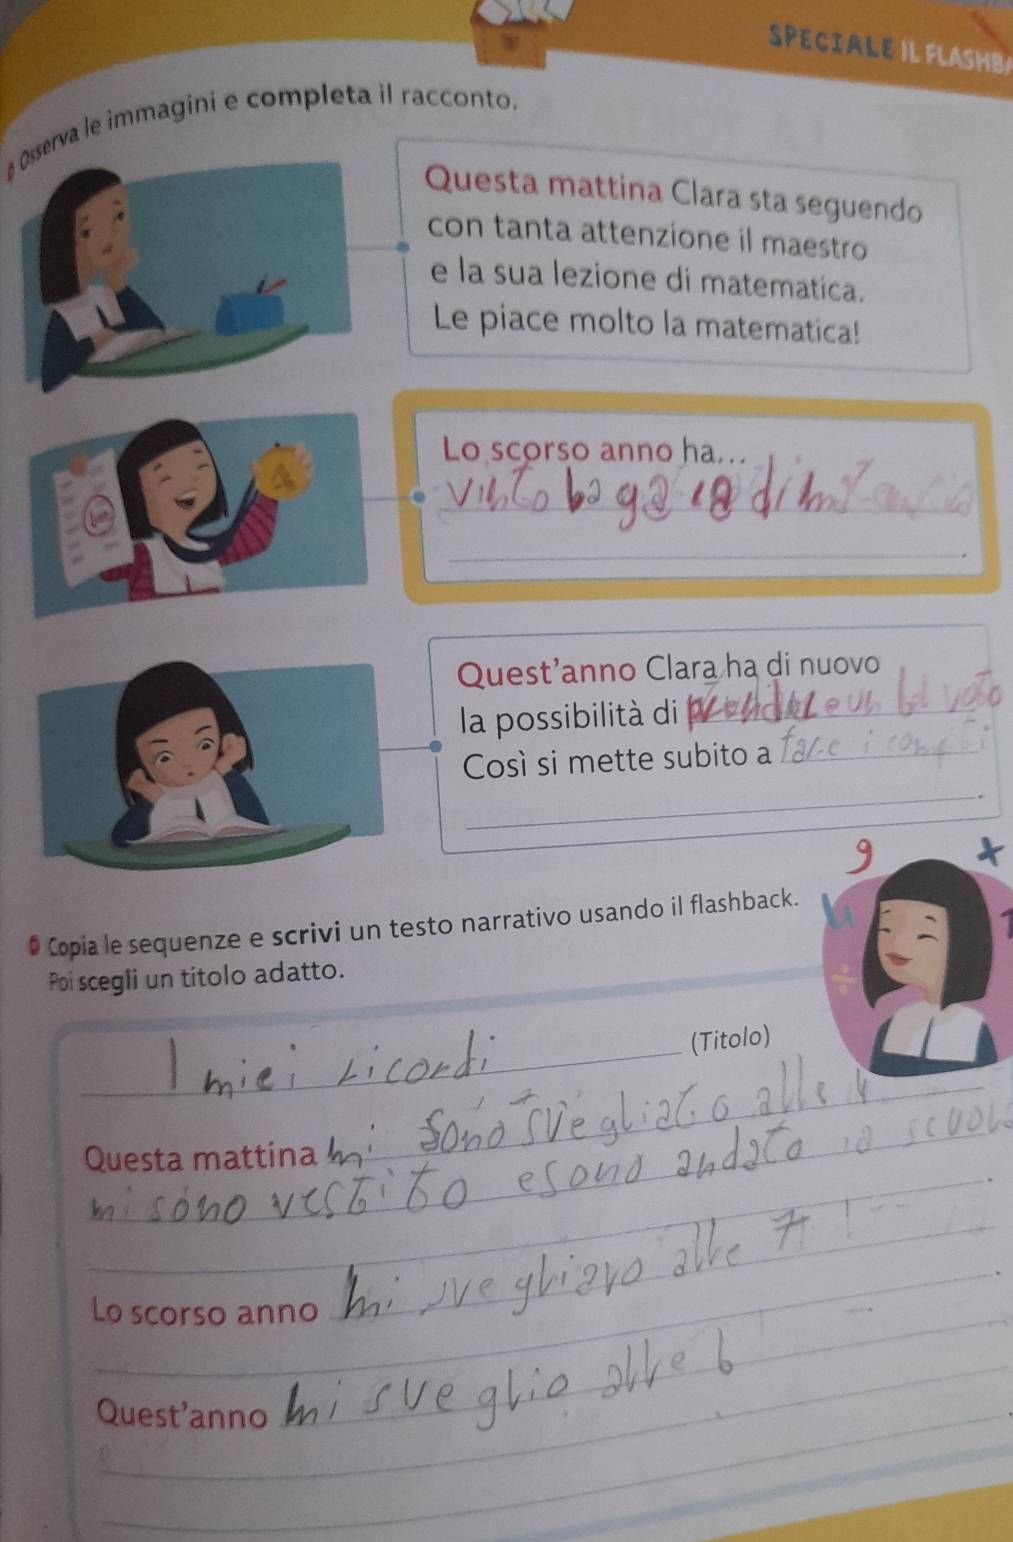 SPECIALE IL FLASHBA
Osserva le immagini e completa il racconto.
Questa mattina Clara sta seguendo
con tanta attenzione il maestro
e la sua lezione di matematica.
Le piace molto la matematica!
Lo scorso anno ha...
vinto la
Quest'anno Clara ha di nuovo
la possibilità di prendere un bel voto
Così si mette subito a fare i compiti
Copia le sequenze e scrivi un testo narrativo usando il flashback.
Poi scegli un titolo adatto.
I miei ricordi (Titolo)
Questa mattina mi sono svegliato alle
mi sono vestito e sono andato a scuola
Lo scorso anno mi svegliavo alle 7
Quest'anno mi sveglio alle 6